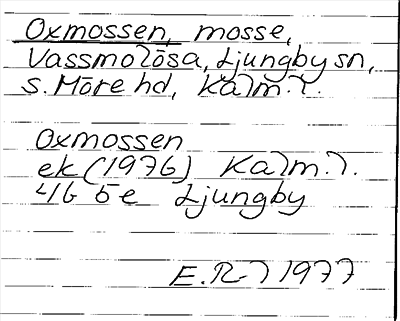 Oxmossen, mosse,
Vassmolösa, Ljungby sn,
S. Möre hd, Kalm. l.
Oxmossen
ek (1976) Kalm. l.
4G 5e Ljungby
1977